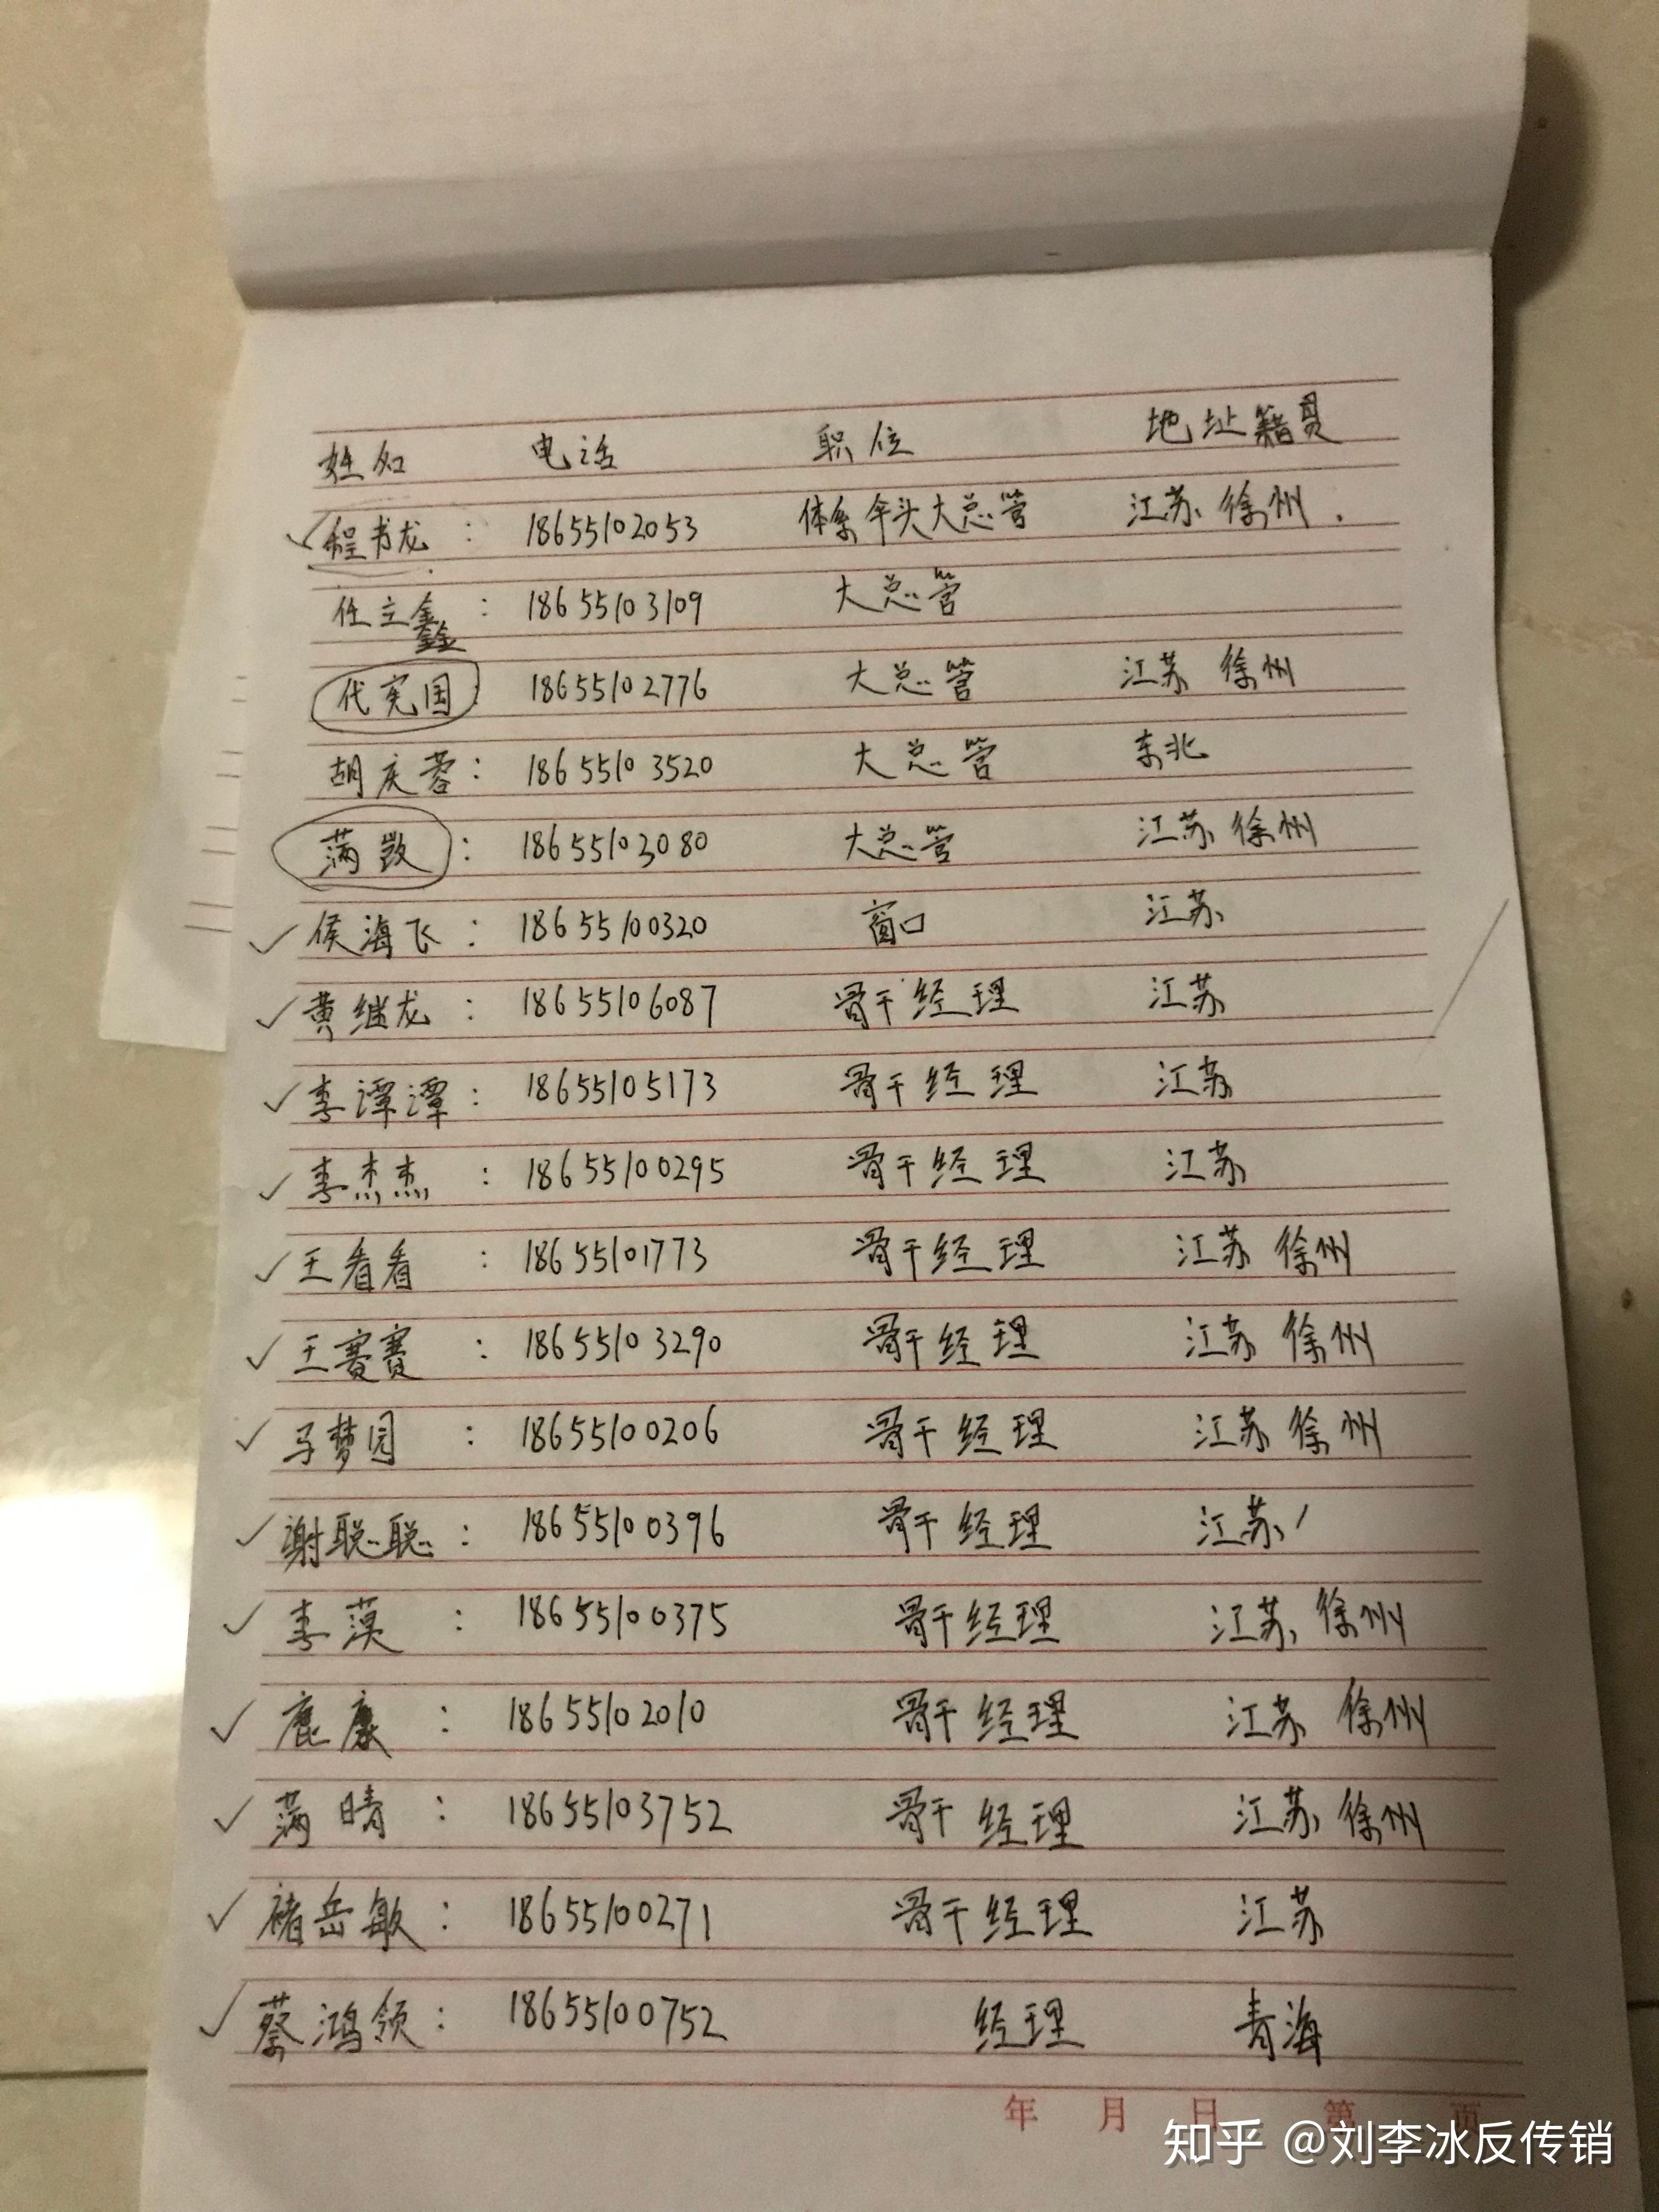 姓名 电话 职位 地址籍贯
✓程书龙: 18655102053 体系伞头大总管 江苏 徐州.
任立鑫: 18655103109 大总管
鑫
代宪国: 18655102776 大总管 江苏 徐州
胡庆蓉: 18655103520 大总管 东北
满: 18655103080 大总管 江苏 徐州
✓侯海飞: 18655100320 窗口 江苏
✓黄继龙: 18655106087 骨干经理 江苏
✓李谭潭: 18655105173 骨干经理 江苏
✓李杰杰: 18655100295 骨干经理 江苏
✓王看看: 18655101773 骨干经理 江苏 徐州
✓王赛赛: 18655103290 骨干经理 江苏 徐州
✓马梦园: 18655100206 骨干经理 江苏 徐州
✓谢聪聪: 18655100396 骨干经理 江苏
✓李漠: 18655100375 骨干经理 江苏 徐州
✓鹿康: 18655102010 骨干经理 江苏 徐州
✓满晴: 18655103752 骨干经理 江苏 徐州
✓褚岳敏: 18655100271 骨干经理 江苏
✓蔡鸿领: 18655100752 经理 青海
年 月 日 第 页
知乎 @刘李冰反传销